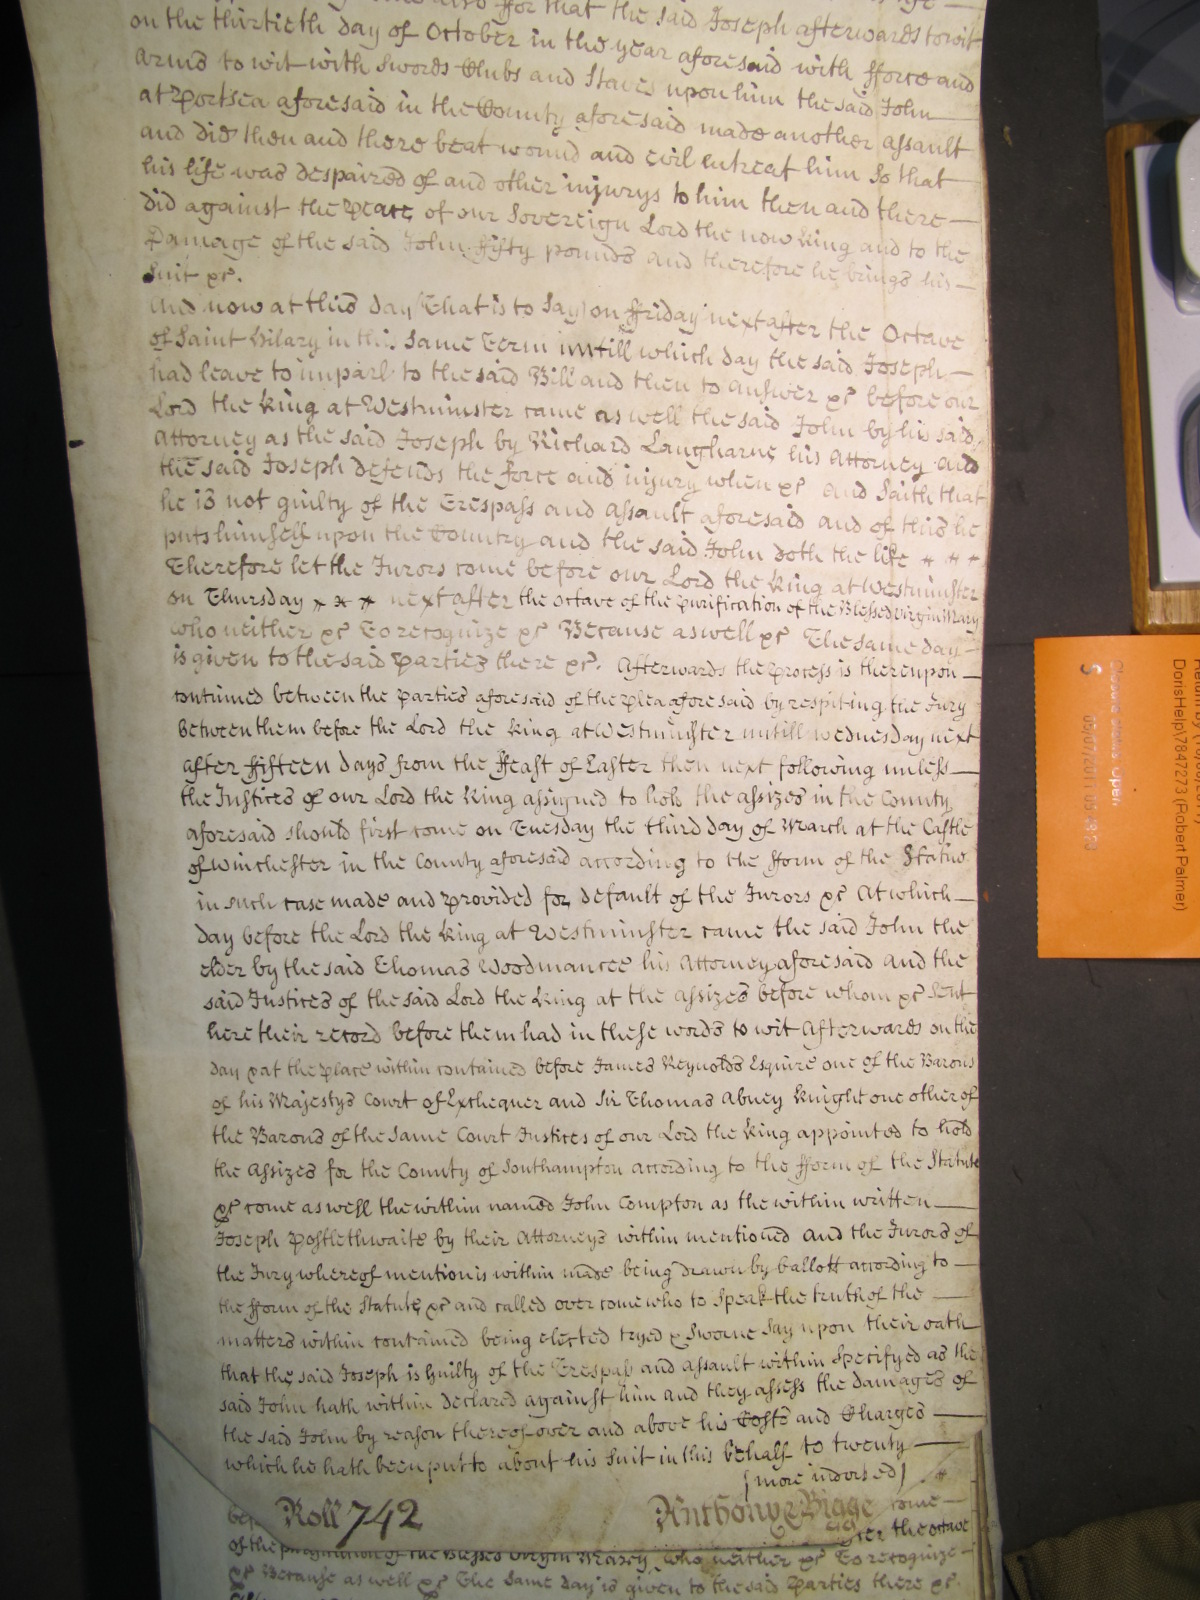 also ffor that the said Joseph afterwards towit
on the thirtieth day of October in the year aforesaid with fforce and
Arms to wit with Swords Clubs and Staves upon him the said John
at Portsea aforesaid in the County aforesaid made another assault
and did then and there beat wound and evil entreat him So that
his life was despaired of and other injurys to him then and there
did against the Peace of our Sovereign Lord the now King and to the
Damage of the said John ffifty pounds and therefore he brings his
Suit &c.
And now at this day (That is to Say) on ffriday next after the Octave
of Saint Hilary in this Same Term untill which day the said Joseph
had leave to imparl to the said Bill and then to answer &c before our
Lord the King at Westminster came as well the said John by his said
Attorney as the said Joseph by Richard Langharne his Attorney and
the said Joseph defends the force and injury when &c and Saith that
he is not guilty of the Trespass and assault aforesaid and of this he
puts himself upon the Country and the said John doth the like
Therefore let the Jurors come before our Lord the King at Westminster
on Thursday next after the octave of the purification of the Blessed Virgin Mary
who neither &c To recognize &c Because as well &c The same day
is given to the said Parties there &c. Afterwards the Process is thereupon
continued between the Parties aforesaid of the plea aforesaid by respiting the Jury
between them before the Lord the King at Westminster untill Wednesday next
after ffifteen days from the ffeast of Easter then next following unless
the Justices of our Lord the King assigned to hold the assizes in the County
aforesaid should first come on Tuesday the third day of March at the Castle
of Winchester in the County aforesaid according to the fform of the Statue
in such case made and provided for default of the Jurors &c At which
day before the Lord the King at Westminster came the said John the
elder by the said Thomas Woodmancee his Attorney aforesaid and the
said Justices of the said Lord the King at the Assizes before whom &c sent
here their record before them had in these words to wit Afterwards on the
day & at the place within contained before James Reynolds Esquire one of the Barons
of his Majestys Court of Exchequer and Sir Thomas Abney Knight one other of
the Barons of the same Court Justices of our Lord the King appointed to hold
the Assizes for the County of Southampton according to the fform of the Statute
&c come as well the within named John Compton as the within written
Joseph Postlethwaite by their Attorneys within mentioned and the Jurors of
the Jury whereof mention is within made being drawn by ballott according to
the fform of the Statute &c and called over come who to Speak the truth of the
matters within contained being elected tryed & Sworne Say upon their oath
that the said Joseph is Guilty of the Trespass and assault within Specifyed as the
said John hath within declared against him and they assess the damages of
the said John by reason thereof over and above his Costs and Charges
which he hath been put to about his suit in this behalf to twenty
[more indorsed]
Roll 742
come
the octave
of the of the Blessed Virgin Marey who neither &c To recognize
&c Because as well &c The same day is given to the said Parties there &c.
Closure status: Open
05/07/2011 03:
S
DorisHelp\7847273 (Robert Palmer)